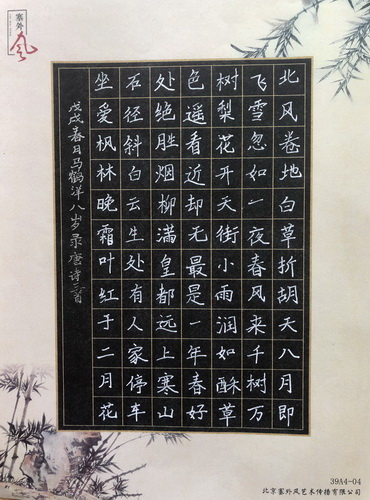 塞外
风
北风卷地白草折胡天八月即
飞雪忽如一夜春风来千树万
树梨花开天街小雨润如酥草
色遥看近却无最是一年春好
处绝胜烟柳满皇都远上寒山
石径斜白云生处有人家停车
坐爱枫林晚霜叶红于二月花
戊戌春日马鹤洋八岁录唐诗三首
39A4-04
北京塞外风艺术传播有限公司